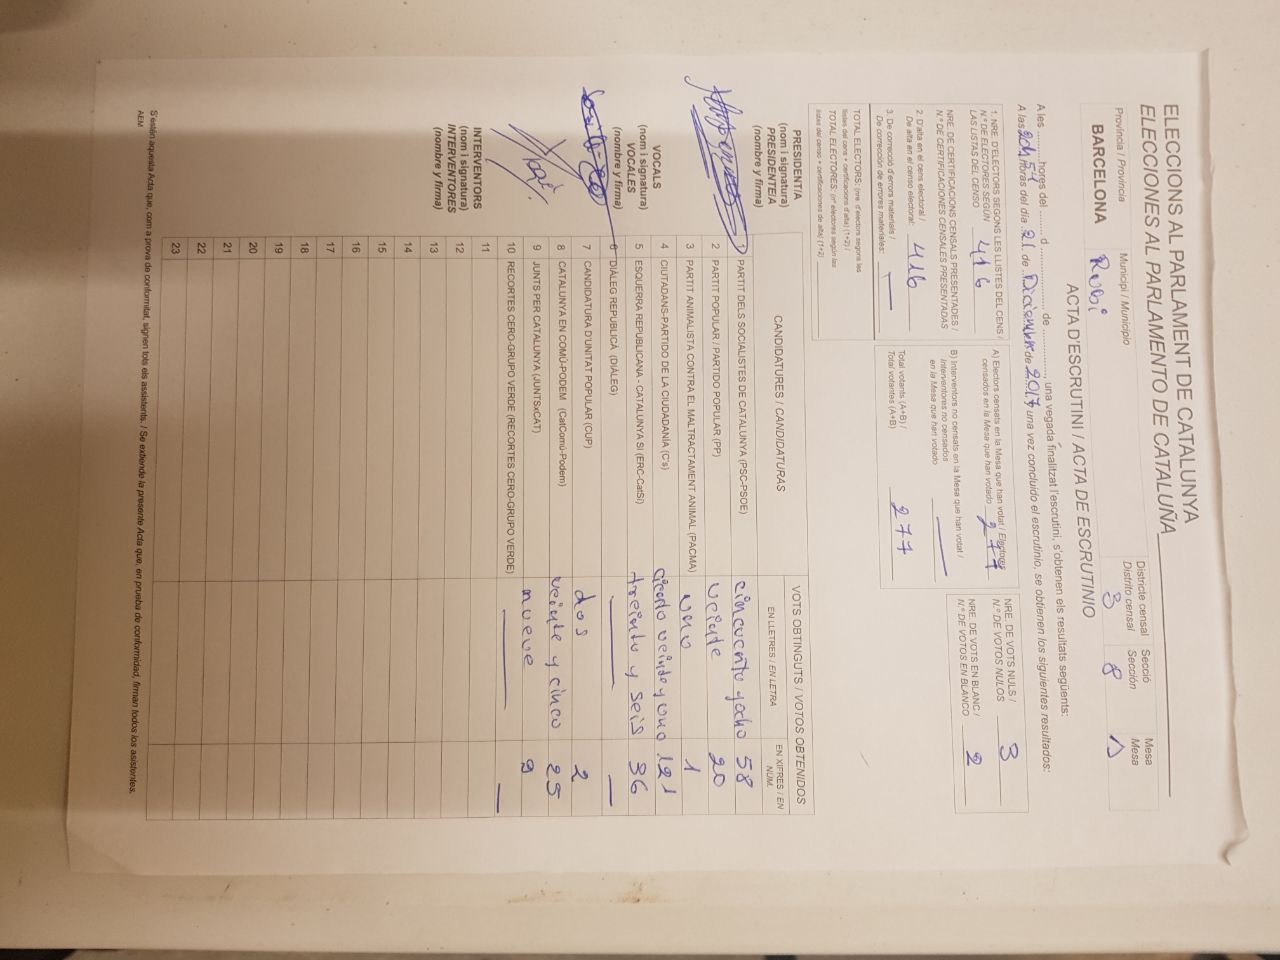 ELECCIONS AL PARLAMENT DE CATALUNYA
ELECCIONES AL PARLAMENTO DE CATALUÑA
Província / Provincia
BARCELONA
Municipi / Municipio
Rubí
Districte censal
Distrito censal
3
Secció
Sección
8
Mesa
Mesa
ACTA D'ESCRUTINI / ACTA DE ESCRUTINIO
A les ........ hores del ........ d ........ de ........, una vegada finalitzat l'escrutini, s'obtenen els resultats següents:
A las horas del día 21 de Diciembre de 2017 una vez concluido el escrutinio, se obtienen los siguientes resultados:
1. NRE. D'ELECTORS SEGONS LES LLISTES DEL CENS /
N.º DE ELECTORES SEGÚN
LAS LISTAS DEL CENSO 416
NRE. DE CERTIFICACIONS CENSALS PRESENTADES /
N.º DE CERTIFICACIONES CENSALES PRESENTADAS
2. D'alta en el cens electoral /
De alta en el censo electoral: 416
3. De correcció d'errors materials /
De corrección de errores materiales: —
TOTAL ELECTORS: (nre. d'electors segons les
llistes del cens + certificacions d'alta) (1+2) /
TOTAL ELECTORES: (nº electores según las
listas del censo + certificaciones de alta) (1+2)
A) Electors censats en la Mesa que han votat / Electores
censados en la Mesa que han votado 277
B) Interventors no censats en la Mesa que han votat /
Interventores no censados
en la Mesa que han votado —
Total votants (A+B) /
Total votantes (A+B) 277
NRE. DE VOTS NULS /
N.º DE VOTOS NULOS 3
NRE. DE VOTS EN BLANC /
N.º DE VOTOS EN BLANCO 2
PRESIDENT/A
(nom i signatura)
PRESIDENTE/A
(nombre y firma)
VOCALS
(nom i signatura)
VOCALES
(nombre y firma)
INTERVENTORS
(nom i signatura)
INTERVENTORES
(nombre y firma)
CANDIDATURES / CANDIDATURAS
VOTS OBTINGUTS / VOTOS OBTENIDOS
EN LLETRES / EN LETRA
EN XIFRES / EN NÚM.
1 PARTIT DELS SOCIALISTES DE CATALUNYA (PSC-PSOE) cincuenta y ocho 58
2 PARTIT POPULAR / PARTIDO POPULAR (PP) veinte 20
3 PARTIT ANIMALISTA CONTRA EL MALTRACTAMENT ANIMAL (PACMA) uno 1
4 CIUTADANS-PARTIDO DE LA CIUDADANÍA (C's) ciento veinte y uno 121
5 ESQUERRA REPUBLICANA - CATALUNYA SÍ (ERC-CatSí) treinta y seis 36
6 DIÀLEG REPUBLICÀ (DIÀLEG) — —
7 CANDIDATURA D'UNITAT POPULAR (CUP) dos 2
8 CATALUNYA EN COMÚ-PODEM (CatComú-Podem) veinte y cinco 25
9 JUNTS PER CATALUNYA (JUNTSxCAT) nueve 9
10 RECORTES CERO-GRUPO VERDE (RECORTES CERO-GRUPO VERDE) — —
11
12
13
14
15
16
17
18
19
20
21
22
23
S'estén aquesta Acta que, com a prova de conformitat, signen tots els assistents. / Se extiende la presente Acta que, en prueba de conformidad, firman todos los asistentes.
AEM